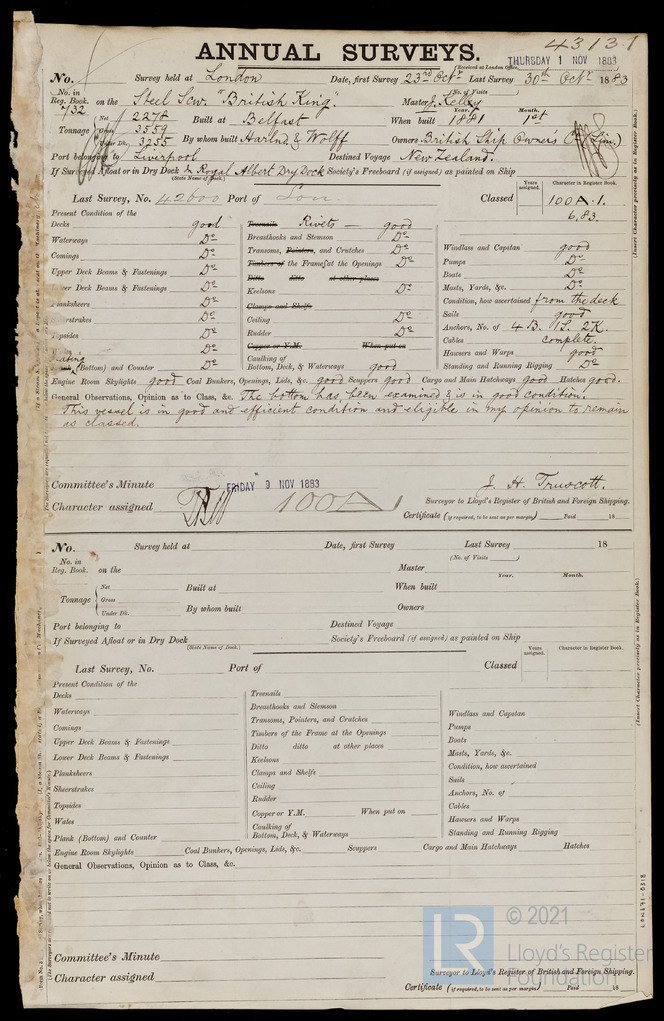 43131
ANNUAL SURVEYS.
(Received at London Office, THURSDAY 1 NOV 1883
No. Survey held at London Date, first Survey 23rd Octr Last Survey 30th Octr 1883
(No. of Visits )
No. in Reg. Book. 732 on the Steel Scw. "British King" Master J. Kelly
Year. Month.
Tonnage Net 2278 Built at Belfast When built 1881 1st
3559
Under Dk. 3255 By whom built Harlnd. & Wolff Owners British Ship Owner's Co (Lim.)
Port belonging to Liverpool Destined Voyage New Zealand.
If Surveyed Afloat or in Dry Dock In Royal Albert Dry Dock Society's Freeboard (if assigned) as painted on Ship
(State Name of Dock.)
Years assigned. Character in Register Book.
Last Survey, No. 42000 Port of Lon Classed 100A.1.
6,83.
Present Condition of the
Decks good
Waterways Do
Comings Do
Upper Deck Beams & Fastenings Do
Lower Deck Beams & Fastenings Do
Planksheers Do
Sheerstrakes Do
Topsides Do
Do
Plating (Bottom) and Counter Do
Treenails Rivets — good
Breasthooks and Stemson Do
Transoms, Pointers, and Crutches Do
Timbers of the Frames at the Openings Do
Ditto ditto at other places
Keelsons Do
Clamps and Shelfs
Ceiling Do
Rudder Do
Copper or Y.M. When put on
Caulking of Bottom, Deck, & Waterways good
Windlass and Capstan good
Pumps Do
Boats Do
Masts, Yards, &c. Do
Condition, how ascertained from the deck
Sails good
Anchors, No. of 4 B. 1S. 2K.
Cables complete.
Hawsers and Warps good
Standing and Running Rigging Do
Engine Room Skylights good Coal Bunkers, Openings, Lids, &c. good Scuppers good Cargo and Main Hatchways good Hatches good.
General Observations, Opinion as to Class, &c. The bottom has been examined & is in good condition.
This vessel is in good and efficient condition and eligible in my opinion to remain
as classed.
Committee's Minute FRIDAY 9 NOV 1883
J. H. Truscott.
Character assigned 100A Surveyor to Lloyd's Register of British and Foreign Shipping.
Certificate (if required, to be sent as per margin) Paid 18
No. Survey held at Date, first Survey Last Survey 18
(No. of Visits )
No. in Reg. Book. on the Master
Year. Month.
Tonnage Net Built at When built
Gross
Under Dk. By whom built Owners
Port belonging to Destined Voyage
If Surveyed Afloat or in Dry Dock Society's Freeboard (if assigned) as painted on Ship
(State Name of Dock.)
Years assigned. Character in Register Book.
Last Survey, No. Port of Classed
Present Condition of the
Decks
Waterways
Comings
Upper Deck Beams & Fastenings
Lower Deck Beams & Fastenings
Planksheers
Sheerstrakes
Topsides
Wales
Plank (Bottom) and Counter
Treenails
Breasthooks and Stemson
Transoms, Pointers, and Crutches
Timbers of the Frame at the Openings
Ditto ditto at other places
Keelsons
Clamps and Shelfs
Ceiling
Rudder
Copper or Y.M. When put on
Caulking of Bottom, Deck, & Waterways
Windlass and Capstan
Pumps
Boats
Masts, Yards, &c.
Condition, how ascertained
Sails
Anchors, No. of
Cables
Hawsers and Warps
Standing and Running Rigging
Engine Room Skylights Coal Bunkers, Openings, Lids, &c. Scuppers Cargo and Main Hatchways Hatches
General Observations, Opinion as to Class, &c.
Committee's Minute
Character assigned Surveyor to Lloyd's Register of British and Foreign Shipping.
Certificate (if required, to be sent as per margin) Paid 18
(Insert Character precisely as in Register Book.)
(Insert Character precisely as in Register Book.)
LON691-0318
LR
© 2021
Lloyd's Register
Foundation